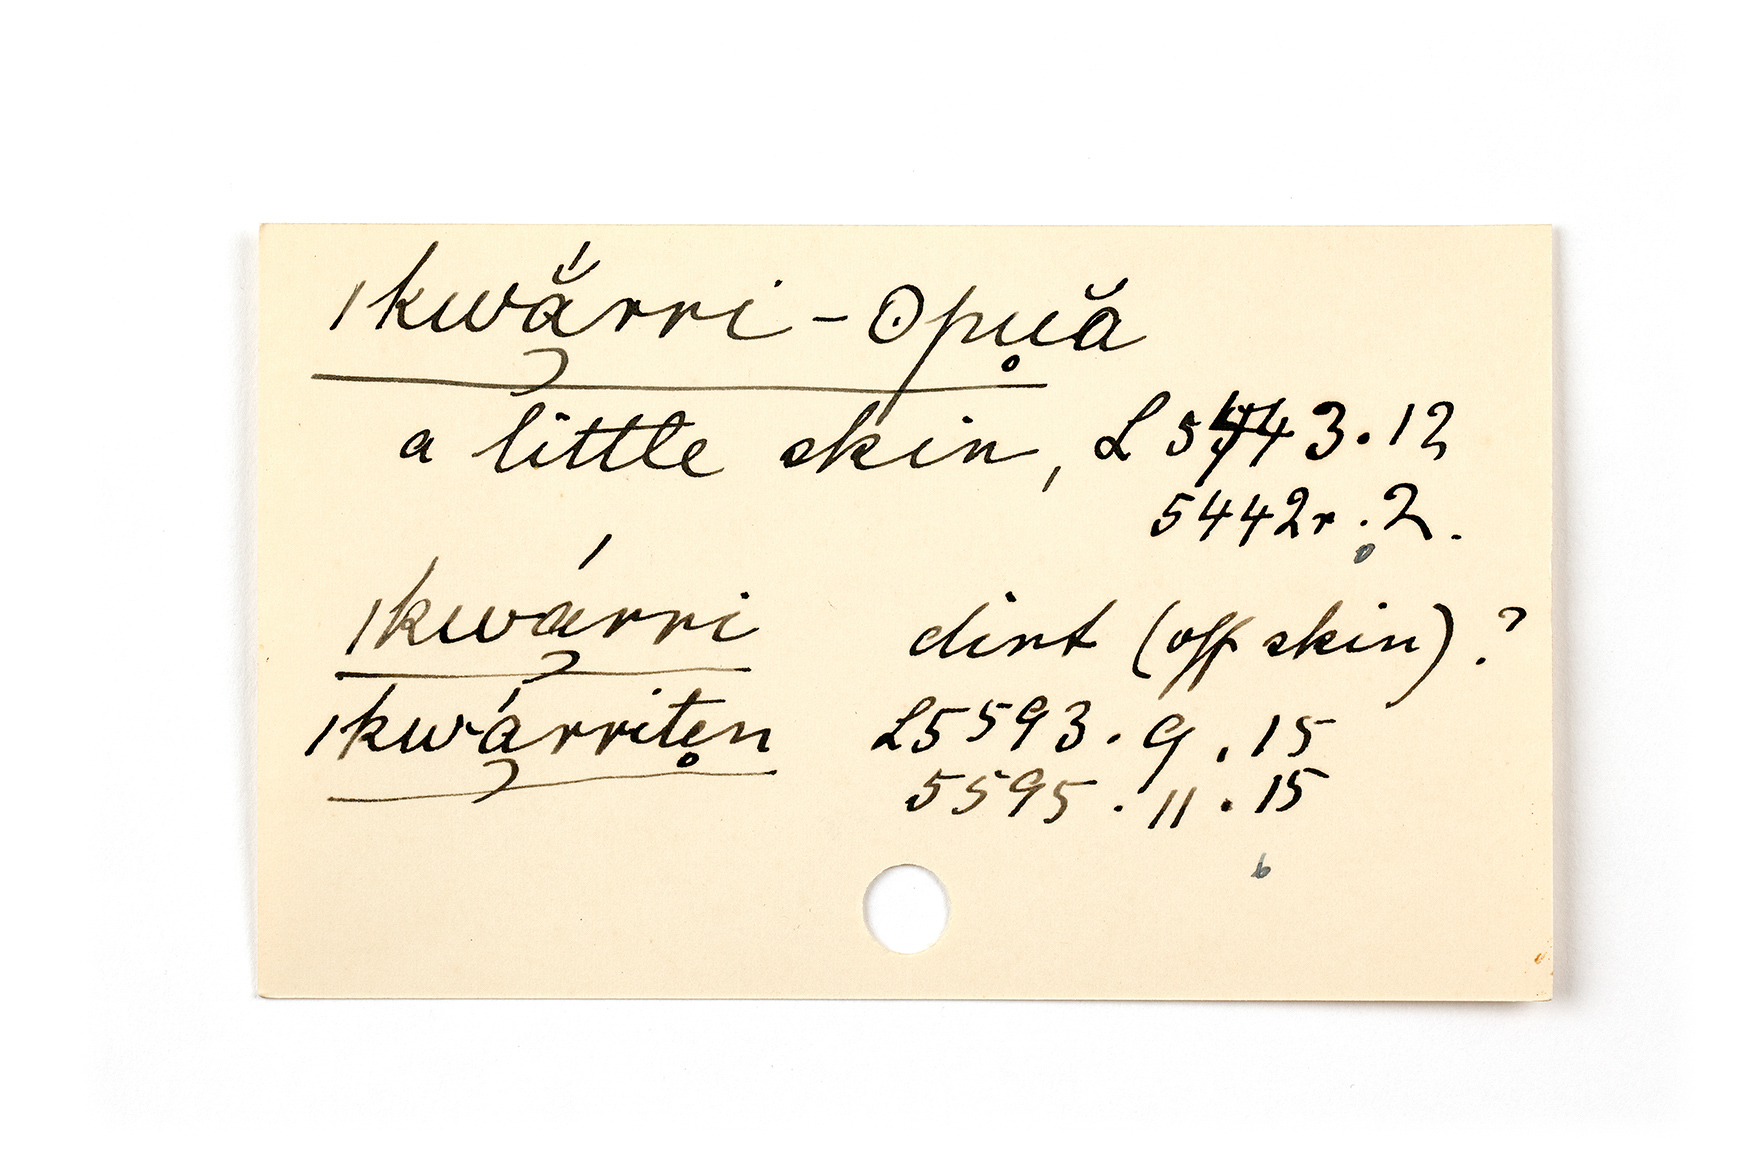 ǀkwā̆́rri - ʘpu̥ă
a little skin, L 5443.12
5442r.2.
ǀkwárri dirt (off skin)?
ǀkwárrite̥n L5593.9.15
5595.11.15
b